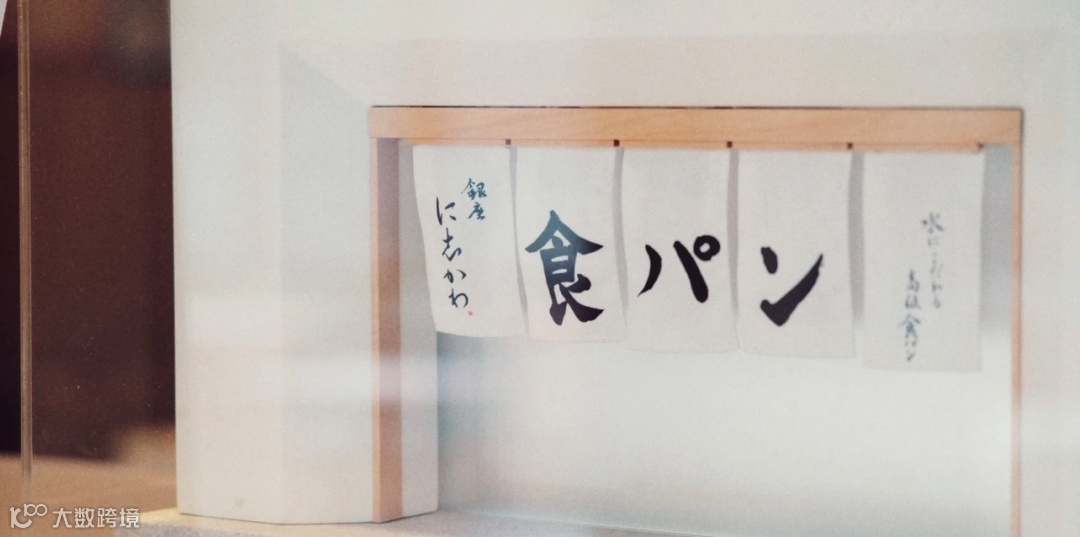 銀座
に志かわ
食パン
水にこだわる
高級食パン
大数跨境